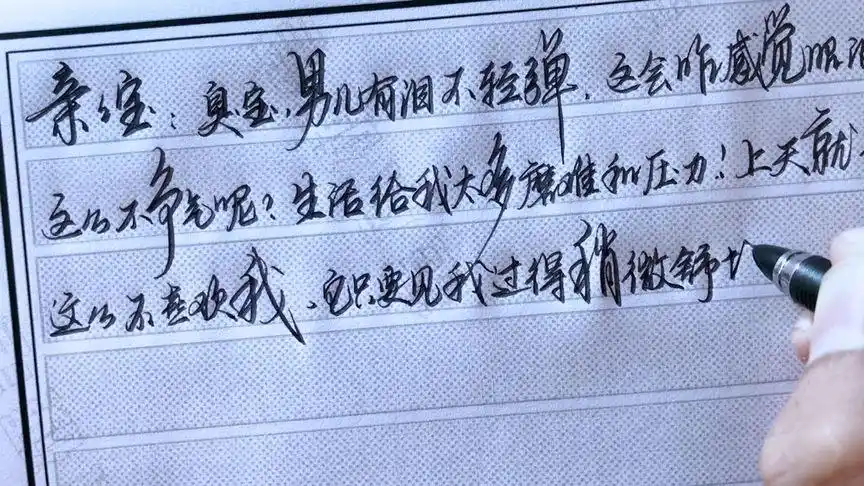 亲宝：臭宝，男儿有泪不轻弹，这会咋感觉眼泪
这么不争气呢？生活给我太多磨难和压力！上天就
这么不喜欢我、它只要见我过得稍微舒